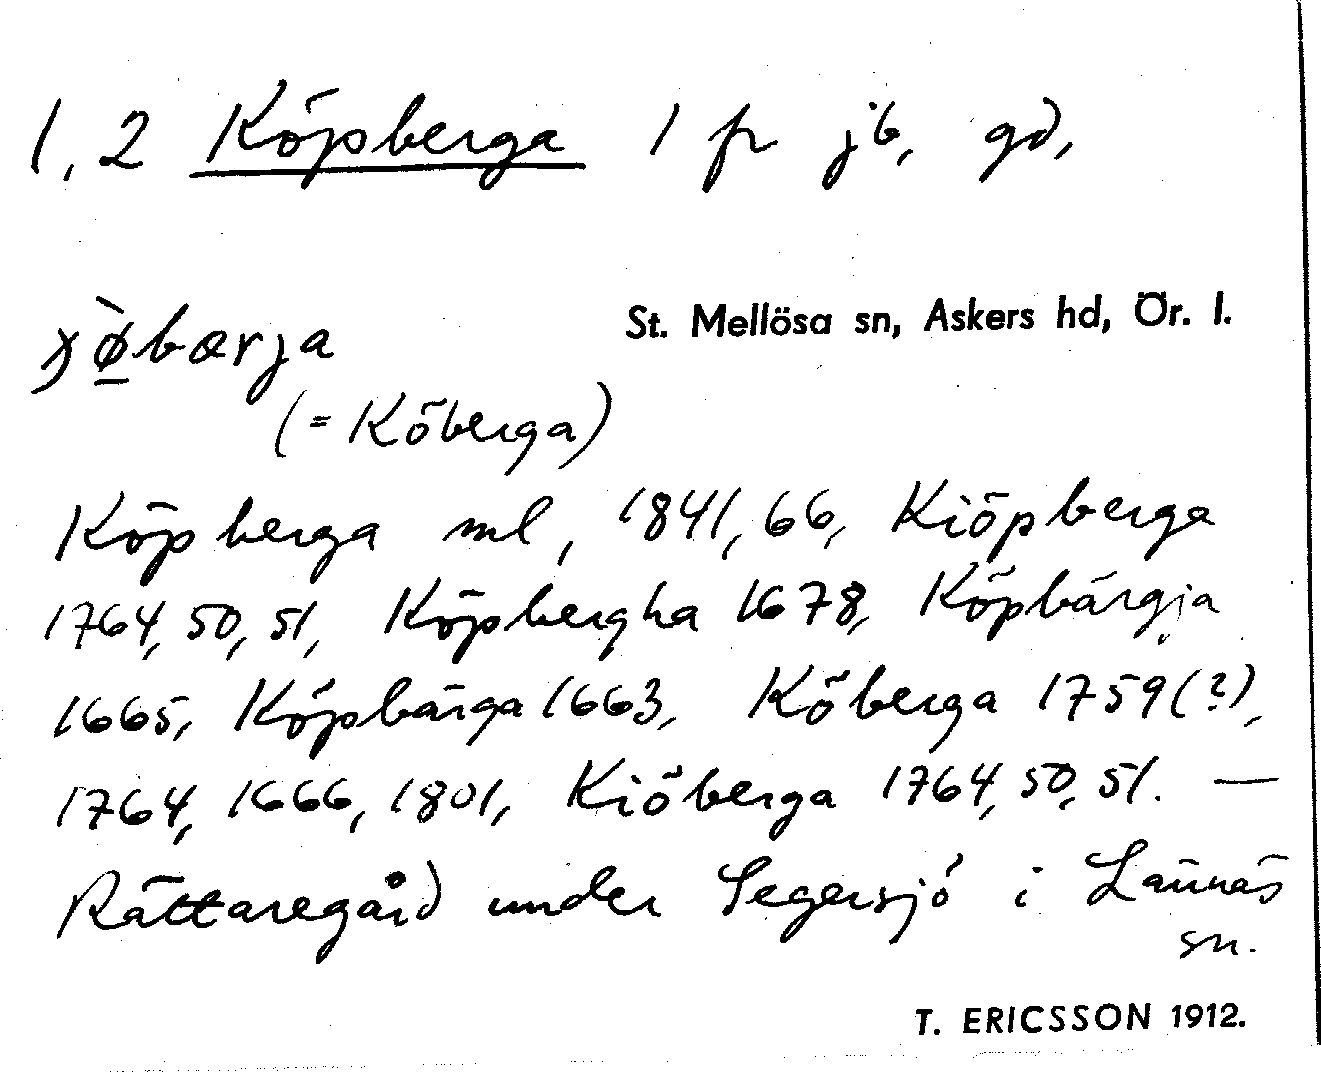 1, 2 Köpberga 1 fr jb, gd,
St. Mellösa sn, Askers hd, Ör. l.
(= Köberga)
Köpberga ml, 1841, 66, Kiöpberga
1764, 50, 51, Köpbergha 1678, Köpbärgja
1665, Köpbärga 1663, Köberga 1759 (?),
1764, 1666, 1801, Kiöberga 1764, 50, 51. —
Rättaregård under Segersjö i Lännäs
sn.
T. ERICSSON 1912.